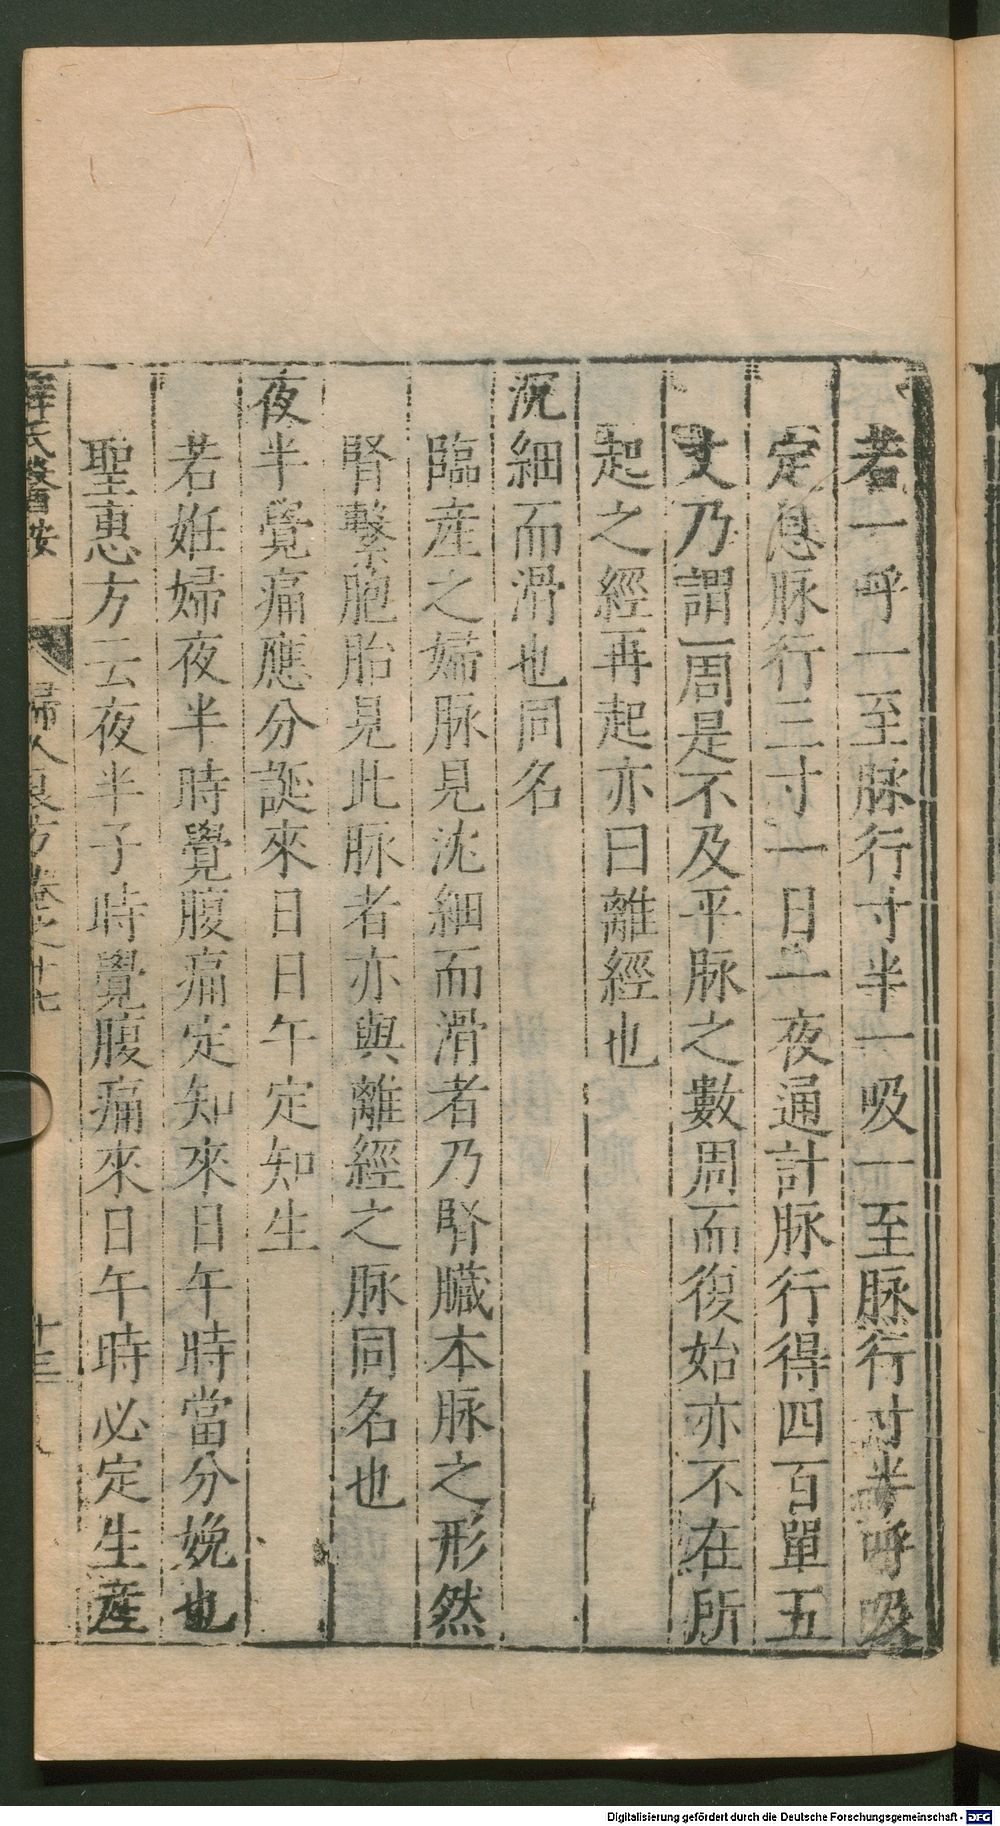 者一呼一至脉行寸半一吸一至脉行寸半呼吸
定息脉行三寸一日一夜通計脉行得四百單五
丈乃謂一周是不及平脉之數周而復始亦不在所
起之經再起亦曰離經也
沉細而滑也同名
臨産之婦脉見沈細而滑者乃腎臟本脉之形然
腎繫胞胎見此脉者亦與離經之脉同名也
夜半覺痛應分誕來日日午定知生
若姙婦夜半時覺腹痛定知來日午時當分娩也
聖惠方云夜半子時覺腹痛來日午時必定生産
薛氏醫按 婦人良方卷之廿七 十三
Digitalisierung gefördert durch die Deutsche Forschungsgemeinschaft - DFG